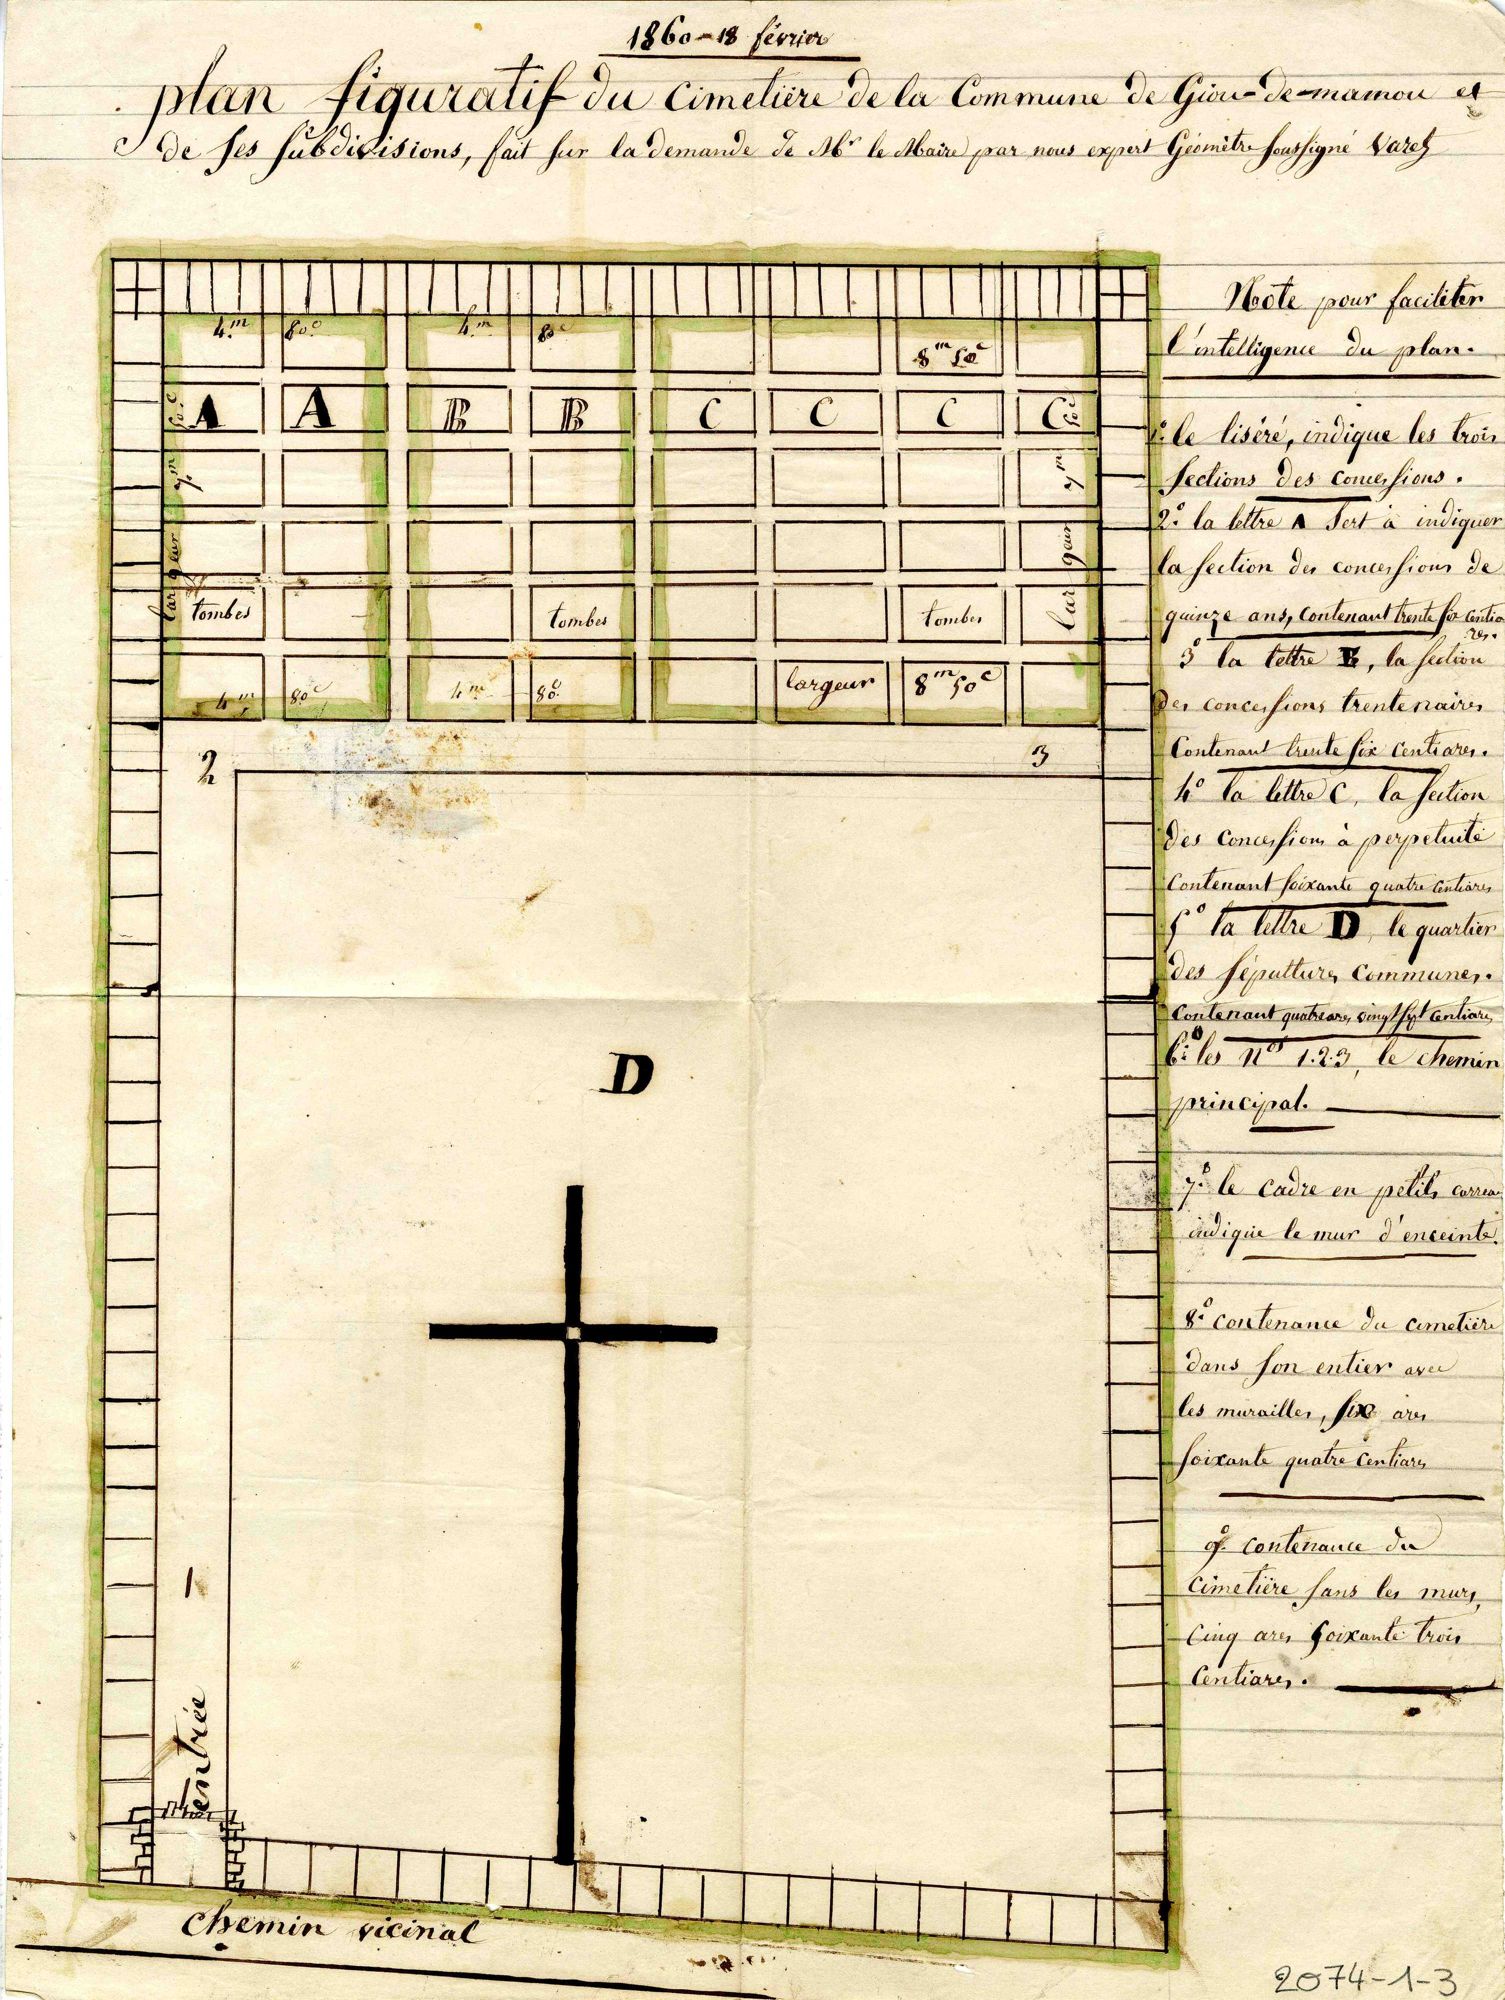 1860 - 18 février
plan figuratif du Cimetière de la Commune de Giou-de-mamou et
de ses subdivisions, fait sur la demande de Mr le Maire par nous expert Géomètre soussigné Varet
4.m 80c. 4.m 80c 8m 50c
50c A A B B C C C C 50c
7m 7m
largeur largeur
tombes tombes tombes
4m 80c 4m 80c. largeur 8m 50c
2 3
D
1
entrée
chemin vicinal
Note pour faciliter
l'intelligence du plan.
1o. le liséré, indique les trois
sections des concessions.
2o. la lettre A sert à indiquer
la section des concessions de
quinze ans, contenant trente six centia
res.
3o la lettre B, la section
des concessions trentenaires
contenant trente six centiares.
4o la lettre C, la section
des concessions à perpetuité
contenant soixante quatre centiares
5o la lettre D, le quartier
des sépultures communes.
contenant quatre ares vingt sept centiares
6o. les nos 1.2.3, le chemin
principal.
7o. le cadre en petits carreau
indique le mur d'enceinte.
8o. contenance du cimetière
dans son entier avec
les murailles, six ares
soixante quatre centiares
9o. contenance du
cimetière sans les murs,
cinq ares soixante trois
centiares.
2074-1-3